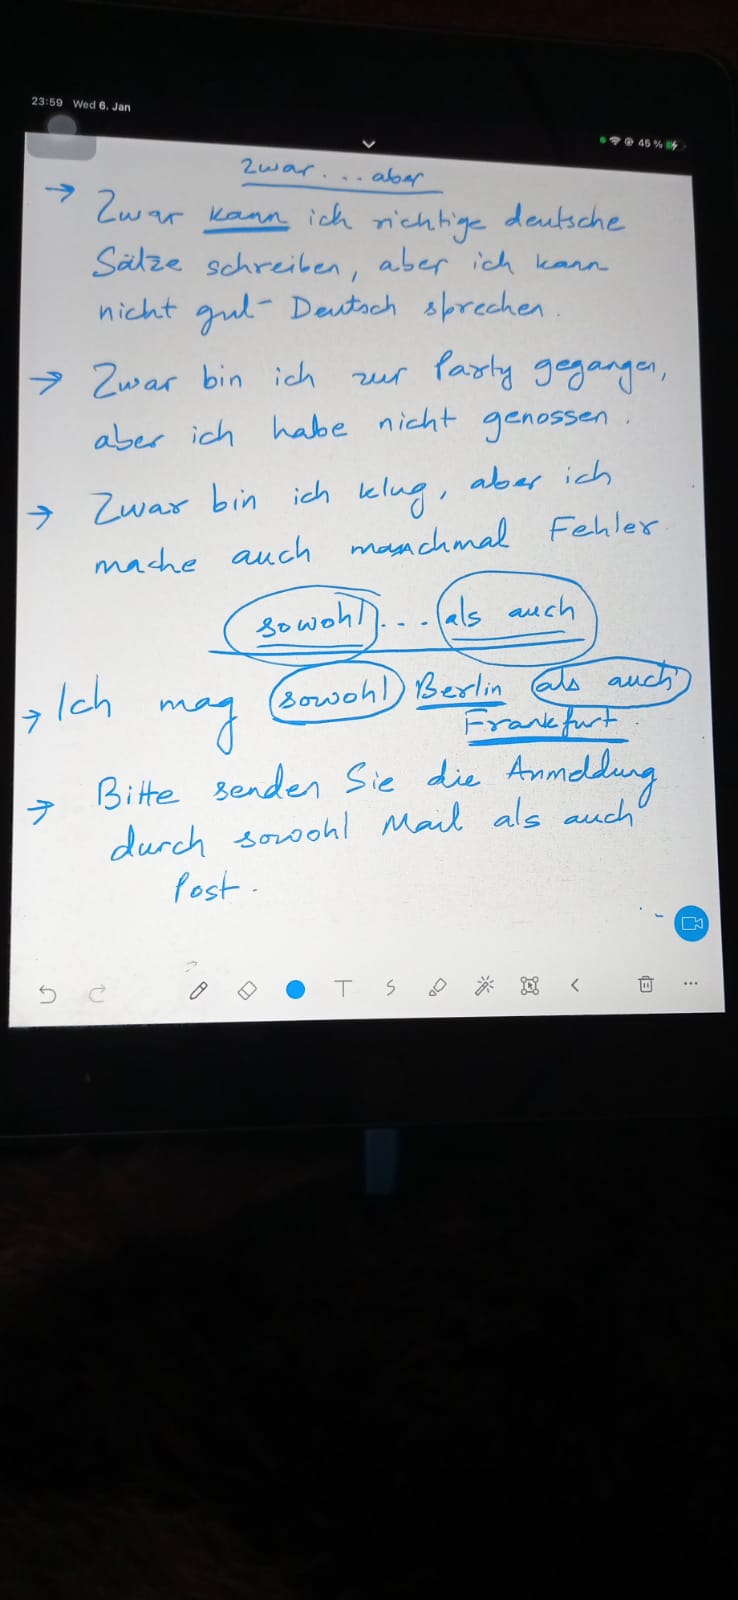 23:59 Wed 6. Jan
45 %
zwar... aber
→ Zwar kann ich richtige deutsche
Sätze schreiben, aber ich kann
nicht gut Deutsch sprechen.
→ Zwar bin ich zur Party gegangen,
aber ich habe nicht genossen.
→ Zwar bin ich klug, aber ich
mache auch manchmal Fehler.
sowohl... als auch
→ Ich mag sowohl Berlin als auch
Frankfurt.
→ Bitte senden Sie die Anmeldung
durch sowohl Mail als auch
Post.
T